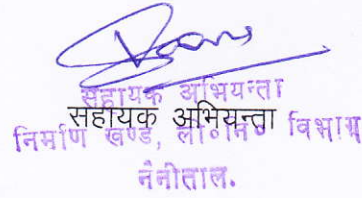 सहायक अभियन्ता
सहायक अभियन्ता
निर्माण खण्ड, लो०नि० विभाग
नैनीताल.